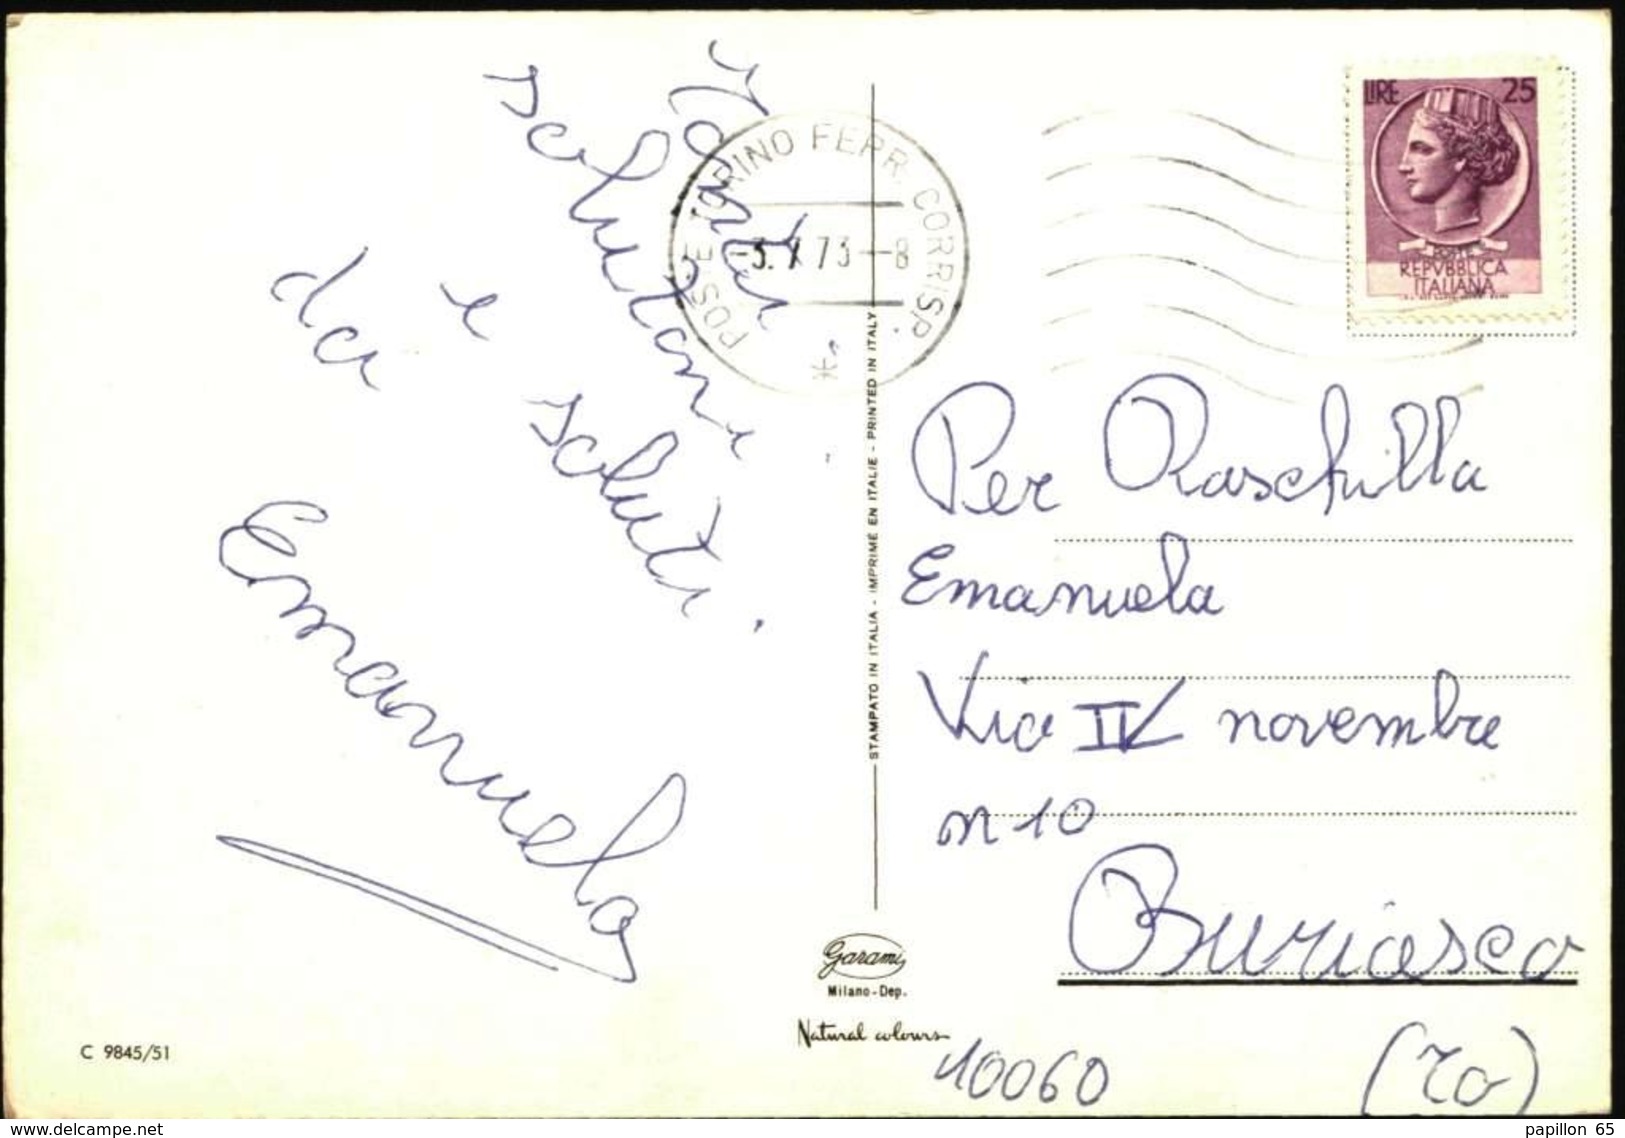 Tanti
salutoni
e saluti
da
Emanuela
C 9845/51
STAMPATO IN ITALIA - IMPRIMÉ EN ITALIE - PRINTED IN ITALY
Garami
Milano-Dep.
Natural colours
POSTE TORINO FERR. CORRISP.
73-8
LIRE 25
POSTE
REPVBBLICA
ITALIANA
Per Raschilla
Emanuela
Via IV novembre
n 10
Buriasco
10060 (To)
www.delcampe.net
papillon 65